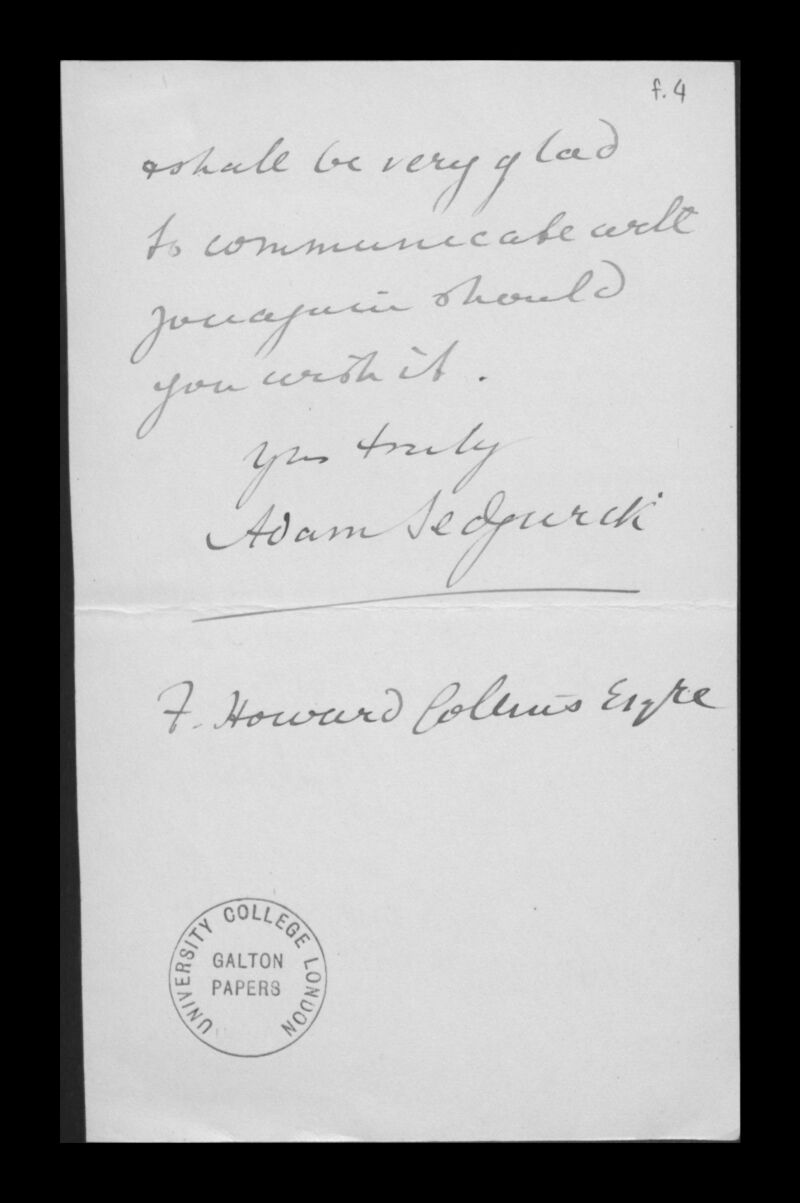 f. 4
& shall be very glad
to communicate with
you again should
you wish it.
Yrs truly
Adam Sedgwick
F. Howard Collins Esqre
UNIVERSITY COLLEGE LONDON
GALTON
PAPERS